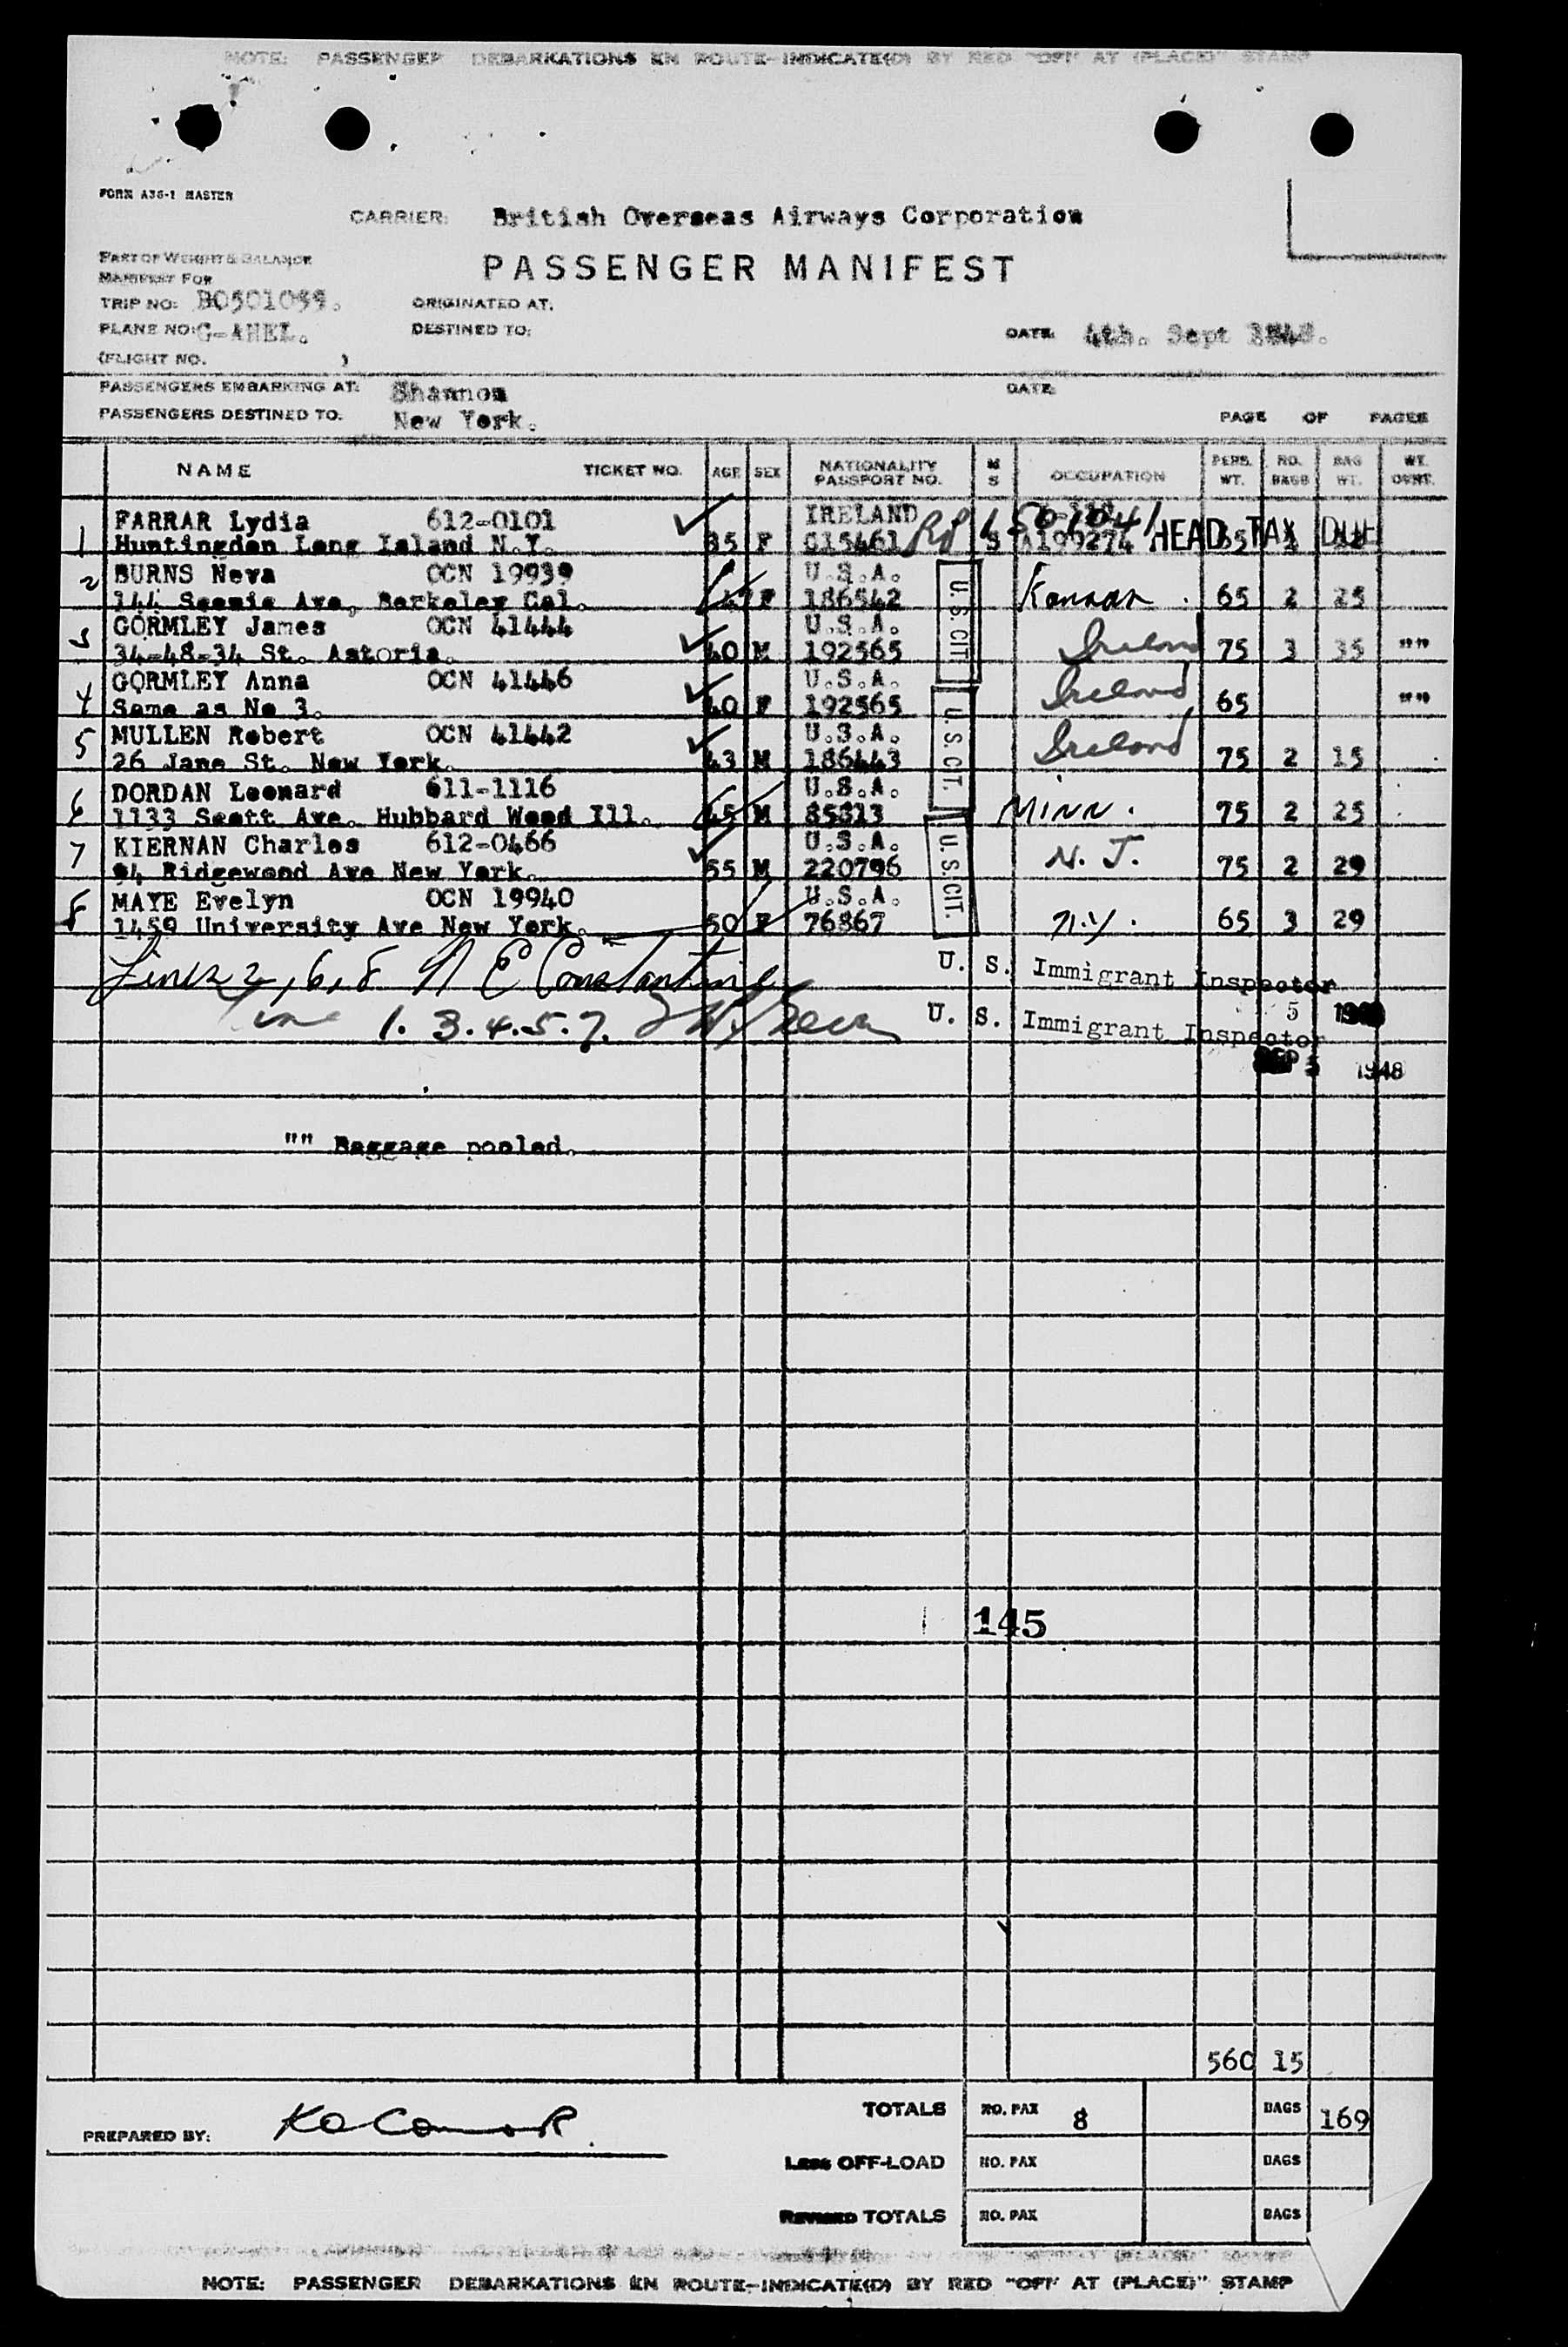 NOTE: PASSENGER DEBARKATIONS EN ROUTE-INDICATE(D) BY RED "OFF" AT (PLACE)" STAMP
FORM A36-1 MASTER
CARRIER: British Overseas Airways Corporation
PART OF WEIGHT & BALANCE
MANIFEST FOR
PASSENGER MANIFEST
TRIP NO: BO501059. ORIGINATED AT:
PLANE NO: G-AHEL. DESTINED TO: DATE: 4th. Sept 1948.
(FLIGHT NO. )
PASSENGERS EMBARKING AT: Shannon DATE:
PASSENGERS DESTINED TO: New York. PAGE OF PAGES
NAME TICKET NO. AGE SEX NATIONALITY PASSPORT NO. M S OCCUPATION PERS. WT. NO. BAGS BAG WT. WT. OVWT.
1 FARRAR Lydia 612-0101 IRELAND
Huntingdon Long Island N.Y. 35 F G15461 RP S A199274 HEAD TAX DUE
2 BURNS Neva OCN 19939 U.S.A.
144 Ave, Berkeley Cal. F 186542 U.S. CIT. Kansas. 65 2 25
3 GORMLEY James OCN 41444 U.S.A.
34-48-34 St. Astoria. 40 M 192565 Ireland 75 3 35 ""
4 GORMLEY Anna OCN 41446 U.S.A.
Same as No 3. 40 F 192565 U.S. CIT. Ireland 65 ""
5 MULLEN Robert OCN 41442 U.S.A.
26 Jane St. New York. 43 M 186443 Ireland 75 2 15
6 DORDAN Leonard 611-1116 U.S.A.
1133 Scott Ave. Hubbard Wood Ill. 45 M 85813 Minn. 75 2 25
7 KIERNAN Charles 612-0466 U.S.A.
94 Ridgewood Ave New York. 55 M 220796 U.S. CIT. N.J. 75 2 29
8 MAYE Evelyn OCN 19940 U.S.A.
1459 University Ave New York. 50 F 76867 N.Y. 65 3 29
Lines 2, 6, 8 N E Constantine U. S. Immigrant Inspector
5 1948
Line 1. 3. 4. 5. 7. U. S. Immigrant Inspector
SEP 5 1948
"" Baggage pooled.
145
560 15
TOTALS NO. PAX 8 BAGS 169
PREPARED BY: K O Connor.
Less OFF-LOAD NO. PAX BAGS
REVISED TOTALS NO. PAX BAGS
NOTE: PASSENGER DEBARKATIONS EN ROUTE-INDICATE(D) BY RED "OFF" AT (PLACE)" STAMP